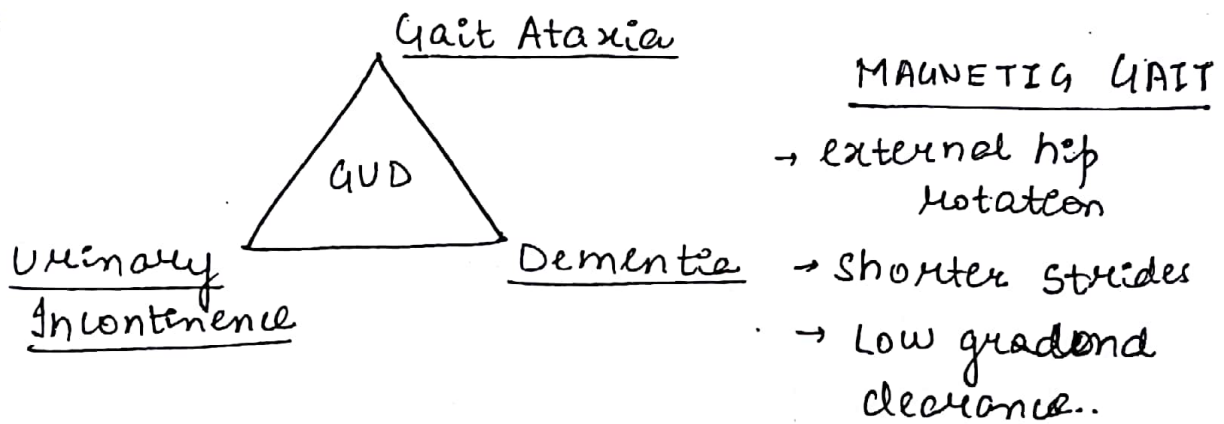 Gait Ataxia
GUD
Urinary
Incontinence
Dementia
MAGNETIG GAIT
→ external hip
rotation
→ Shorter strides
→ Low gradond
clearance..